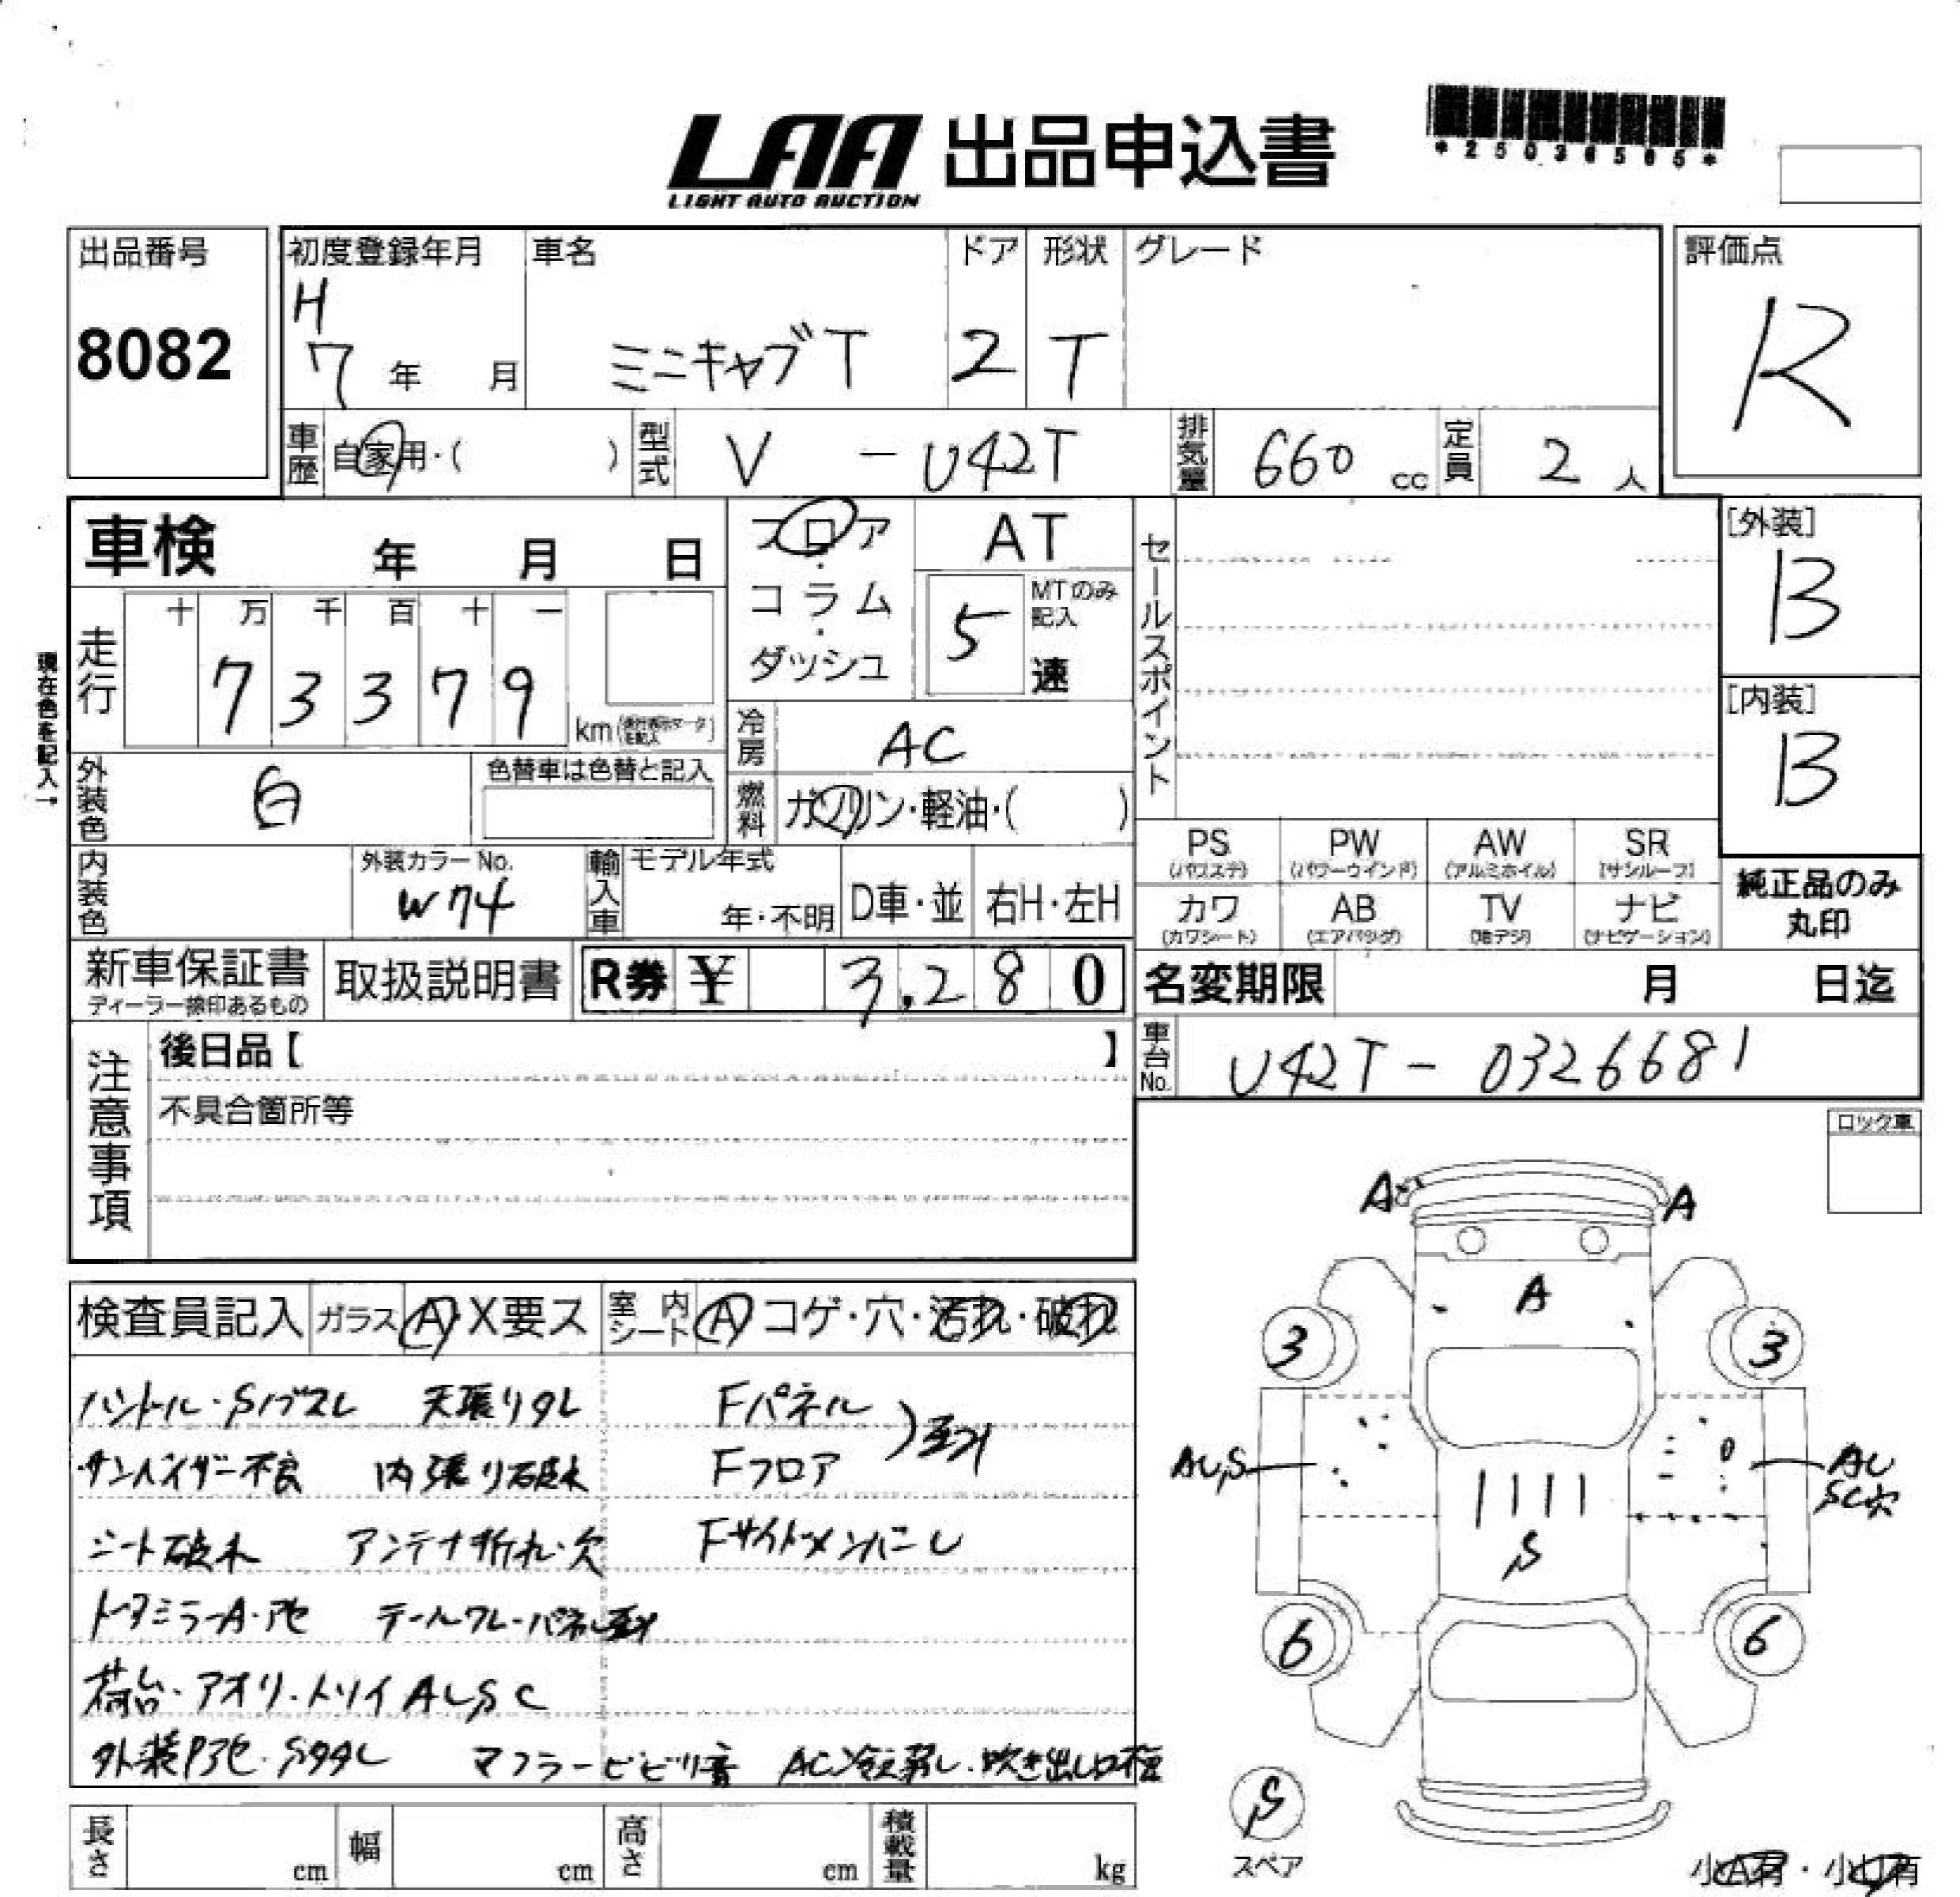 LAA 出品申込書
LIGHT AUTO AUCTION
*25036505*
出品番号
8082
初度登録年月
H
7 年 月
車名
ミニキャブT
ドア
2
形状
T
グレード
評価点
R
車歴 自家用・( )
型式 V - U42T
排気量 660 cc
定員 2 人
車検 年 月 日
フロア・コラム・ダッシュ
AT
5
MTのみ記入
速
走行
十 万 千 百 十 一
7 3 3 7 9
km
現在色を記入。
冷房 AC
燃料 ガソリン・軽油・( )
外装色 白
色替車は色替と記入
内装色
外装カラーNo.
W74
輸入車
モデル年式
年・不明
D車・並
右H・左H
新車保証書
取扱説明書
R券 ¥ 3,280
セールスポイント
[外装]
B
[内装]
B
PS (パワステ)
PW (パワーウインド)
AW (アルミホイル)
SR (サンルーフ)
カワ (カワシート)
AB (エアバッグ)
TV (地デジ)
ナビ (ナビゲーション)
純正品のみ
丸印
名変期限 月 日迄
車台No. U42T - 0326681
注意事項
後日品【 】
不具合箇所等
ロック車
検査員記入
ガラス A・X要ス
室内シート A コゲ・穴・汚れ・破れ
ハンドル・Sノブスレ 天張りタレ Fパネル
サンバイザー不良 内張り破れ Fフロア
シート破れ アンテナ折れ・欠 FサイドメンバーU
荷台・アオリ・トリイAUSC
マフラービビリ音
A A
A
3 3
AU,S
AU
SC穴
S
6 6
S
スペア
長さ cm
幅 cm
高さ cm
積載量 kg
小A有・小U有